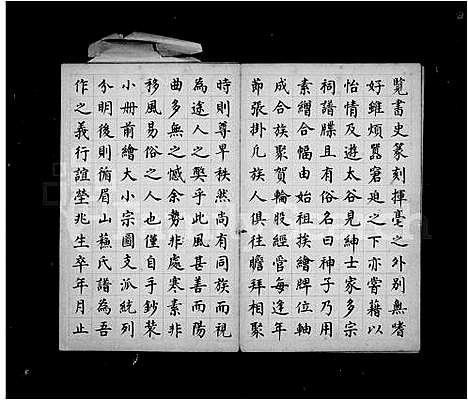 覽書史篆刻揮毫之外別無嗜
好雖煩囂窘迫之下亦嘗藉以
怡情及遊太谷見紳士家多宗
祠譜牒且有俗名曰神子乃用
素繒合幅由始祖挨繪牌位軸
成合族聚貲輪股經營每逢年
節張掛凡族人俱往瞻拜相聚
時則尊卑秩然尚有同族而視
為途人之獘乎此風甚善而陽
曲多無之憾余勢非處寒素非
移風易俗之人也僅自手鈔裝
小冊前繪大小宗圖支派統列
分明後則循眉山蘇氏譜為吾
作之義行誼塋兆生卒年月止